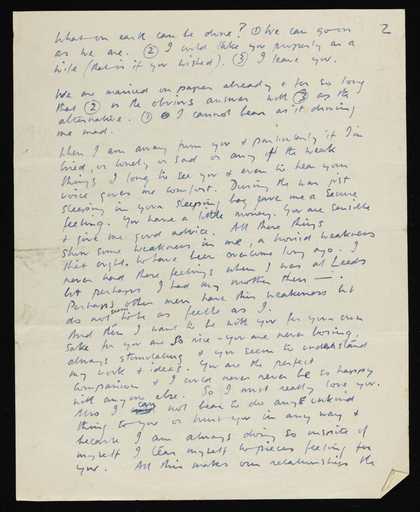 2
What on earth can be done? ① We can go on
as we are. ② I could take you properly as a
wife (that is if you wished). ③ I leave you.
We are married on paper already & for so long
that ② is the obvious answer with ③ as the
alternative. ① I cannot bear as it driving
me mad.
When I am away from you & particularly if I'm
tired, or lonely or sad or any of the weak
things I long to see you & even to hear your
voice gives me comfort. During the war just
sleeping in your sleeping bag gave me a secure
feeling. You have a little money. You are sensible
& give me good advice. All these things
show some weakness in me, a horrid weakness
that ought to have been overcome long ago. I
never had these feelings when I was at Leeds
but perhaps I had my mother then —.
Perhaps other men have this weakness but
do not look as feeble as I.
And then I want to be with you for your own
sake for you are so nice – you are never boring,
always stimulating & you seem to understand
my work & ideas. You are the perfect
companion & I could never never be so happy
with anyone else. So I must really love you.
Also I can not bear to do any unkind
thing to you or hurt you in any way &
because I am always doing so inspite of
myself I tear myself to pieces feeling for
you. All this makes our relationship the